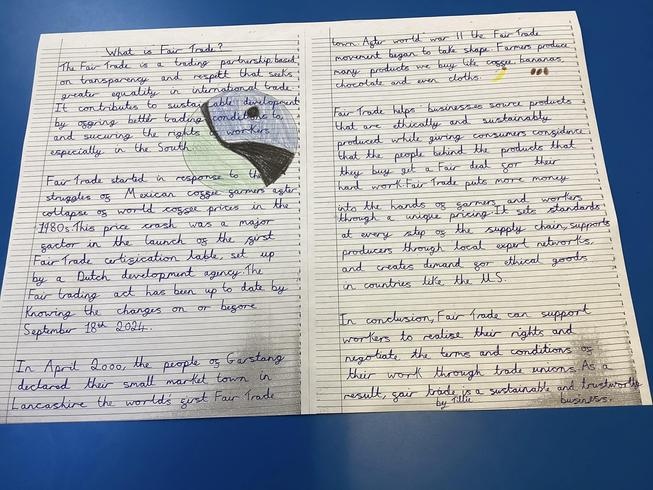 What is Fair Trade?
The Fair Trade is a trading partnership, based
on transparency and respett that seeks
greater equality in international trade.
It contributes to sustainable development
by offering better trading conditions to,
and sucuring the rights of workers
especially in the South.
Fair Trade started in response to the
struggles of Mexican coffee farmers after
collapse of world coffee prices in the
1980s. This price crash was a major
factor in the launch of the first
Fair Trade certification lable, set up
by a Dutch development agency. The
Fair trading act has been up to date by
Knowing the changes on or before
September 18th 2024.
In April 2000, the people of Garstang
declared their small market town in
Lancashire the worlds first Fair Trade
town. After world war II the Fair Trade
movement began to take shape. Farmers produce
many products we buy like coffee, bananas,
chocolate and even cloths.
Fair Trade helps businesses source products
that are ethically and sustainably
produced while giving consumers confidence
that the people behind the products that
they buy get a Fair deal for their
hard work. Fair Trade puts more money
into the hands of farmers and workers
through a unique pricing. It sets standards
at every step of the supply chain, supports
producers through local expert networks,
and creates demand for ethical goods
in countries like the U.S.
In conclusion, Fair Trade can support
workers to realise their rights and
negotiate the terms and conditions of
their work through trade unions. As a
result, fair trade is a sustainable and trustworthy
business.
by Tillie